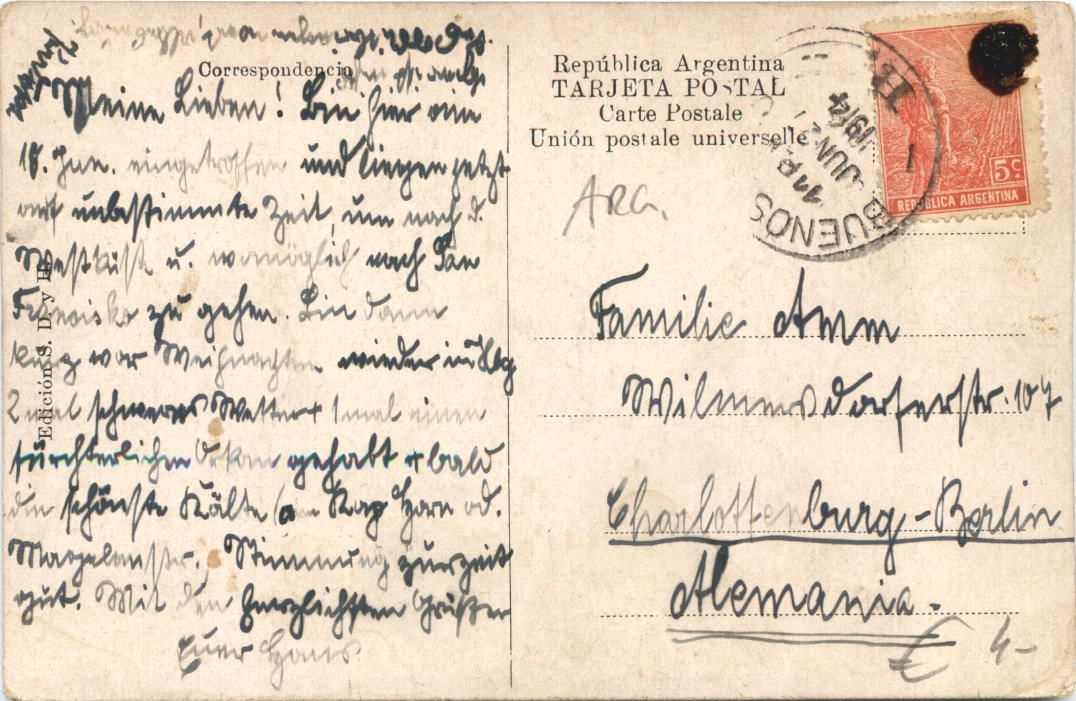 Correspondencia
Meine Lieben! Bin hier am
18. Jun. eingetroffen und liegen jetzt
auf unbestimmte Zeit, um nach d.
Westküste u. womöglich nach San
Franzisko zu gehen. Bin dann
kurz vor Weihnachten wieder in Hbg
2 mal schweres Wetter + 1 mal einen
fürchterlichen Orkan gehabt + bald
die schönste Kälte (am Kap Horn od.
Magelanstr.) Stimmung zurzeit
gut. Mit den herzlichsten Grüßen
Euer Hans
Edición S. D. y H.
República Argentina
TARJETA POSTAL
Carte Postale
Unión postale universelle
ARG.
BUENOS
11 P
JUN 21
1914
5c
REPUBLICA ARGENTINA
Familie Amm
Wilmersdorferstr. 107
Charlottenburg-Berlin
Alemania-
4-